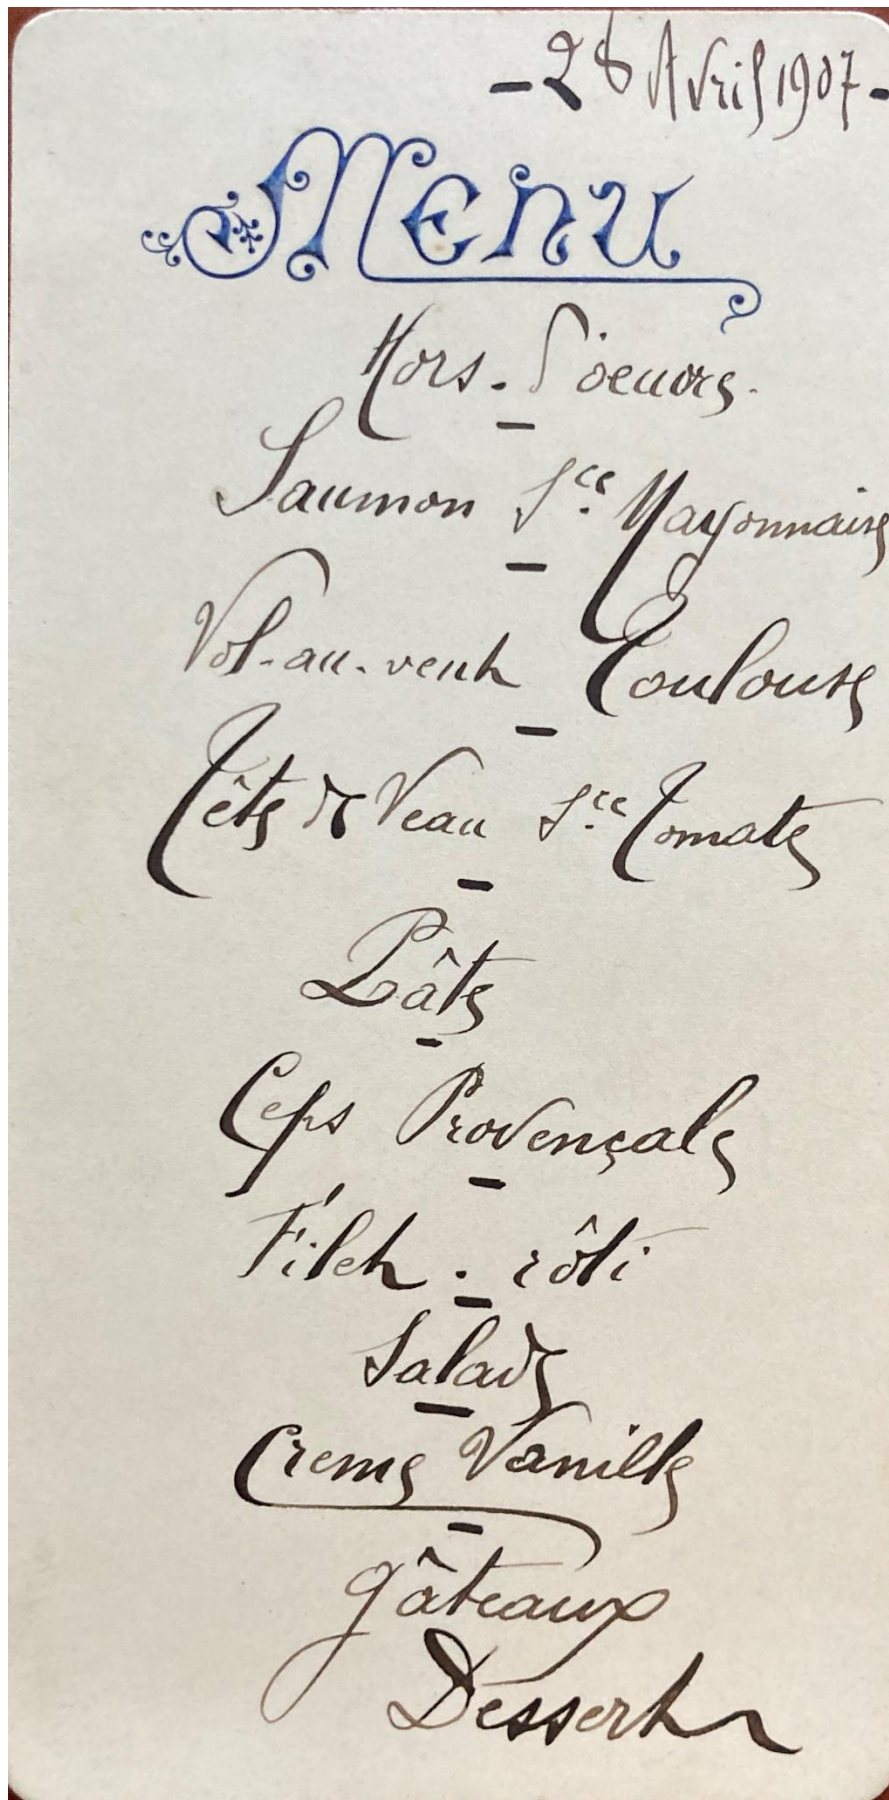 - 28 Avril 1907 -
Menu
Hors-d'oeuvre.
Saumon Sce Mayonnaise
Vol-au-vent Toulouse
Tête de Veau Sce Tomate
Pâté
Ceps Provençale
Filet - rôti
Salade
Creme Vanille
gâteaux
Dessert